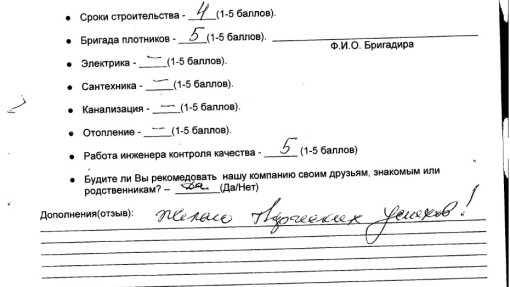 • Сроки строительства - 4 (1-5 баллов).
• Бригада плотников - 5 (1-5 баллов).
Ф.И.О. Бригадира
• Электрика - — (1-5 баллов).
• Сантехника - — (1-5 баллов).
• Канализация - — (1-5 баллов).
• Отопление - — (1-5 баллов).
• Работа инженера контроля качества - 5 (1-5 баллов)
• Будите ли Вы рекомедовать нашу компанию своим друзьям, знакомым или
родственникам? – да (Да/Нет)
Дополнения(отзыв): Желаю Творческих успехов!